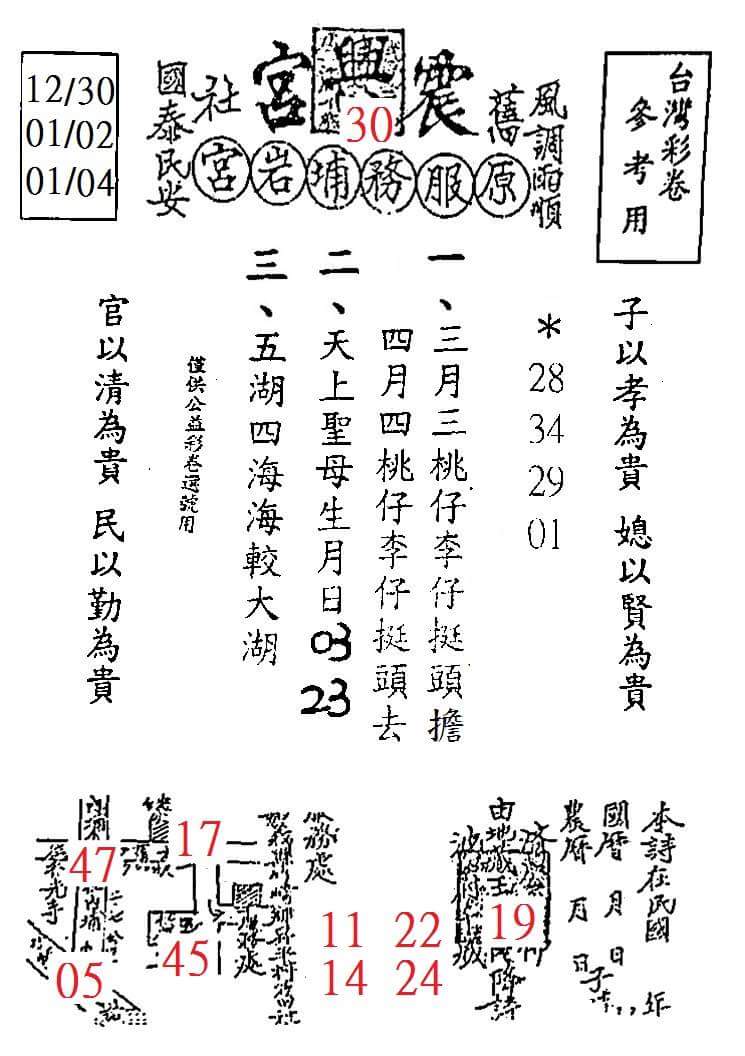 台灣彩卷
參考用
風調雨順
舊
震興宮
社
國泰民安
30
原服務埔岩宮
12/30
01/02
01/04
子以孝為貴 媳以賢為貴
*
28
34
29
01
一、三月三桃仔李仔挺頭擔
四月四桃仔李仔挺頭去
二、天上聖母生月日
03
23
三、五湖四海海較大湖
僅供公益彩卷選號用
官以清為貴 民以勤為貴
本詩在民國 年
國曆 月 日
農曆 月 日
19
服務處
11 22
14 24
17
47
45
05